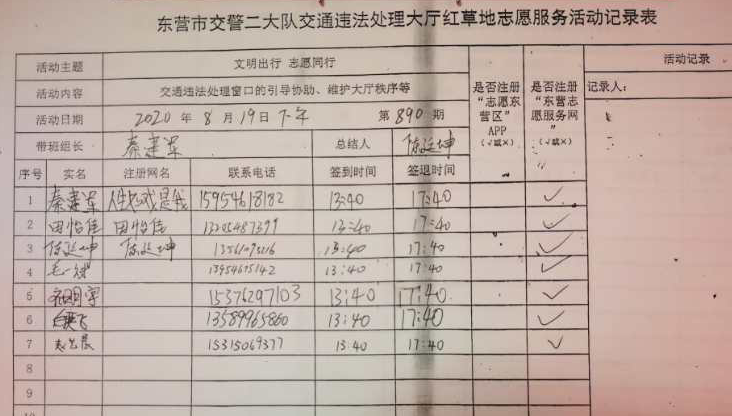 东营市交警二大队交通违法处理大厅红草地志愿服务活动记录表
活动主题 文明出行 志愿同行 是否注册“志愿东营区”APP（√或×） 是否注册“东营志愿服务网”（√或×） 活动记录
活动内容 交通违法处理窗口的引导协助、维护大厅秩序等 记录人：
活动日期 2020 年 8 月 19 日 下午 第 890 期
带班组长 秦建军 总结人 陈延坤
序号 实名 注册网名 联系电话 签到时间 签退时间
1 秦建军 15954618182 13:40 17:40 √
2 田怡佳 田怡佳 13:40 17:40 √
3 陈延坤 陈延坤 13:40 17:40 √
4 13:40 17:40 √
5 15376297103 13:40 17:40 √
6 13589965860 13:40 17:40 √
7 15315069377 13:40 17:40 √
8
9